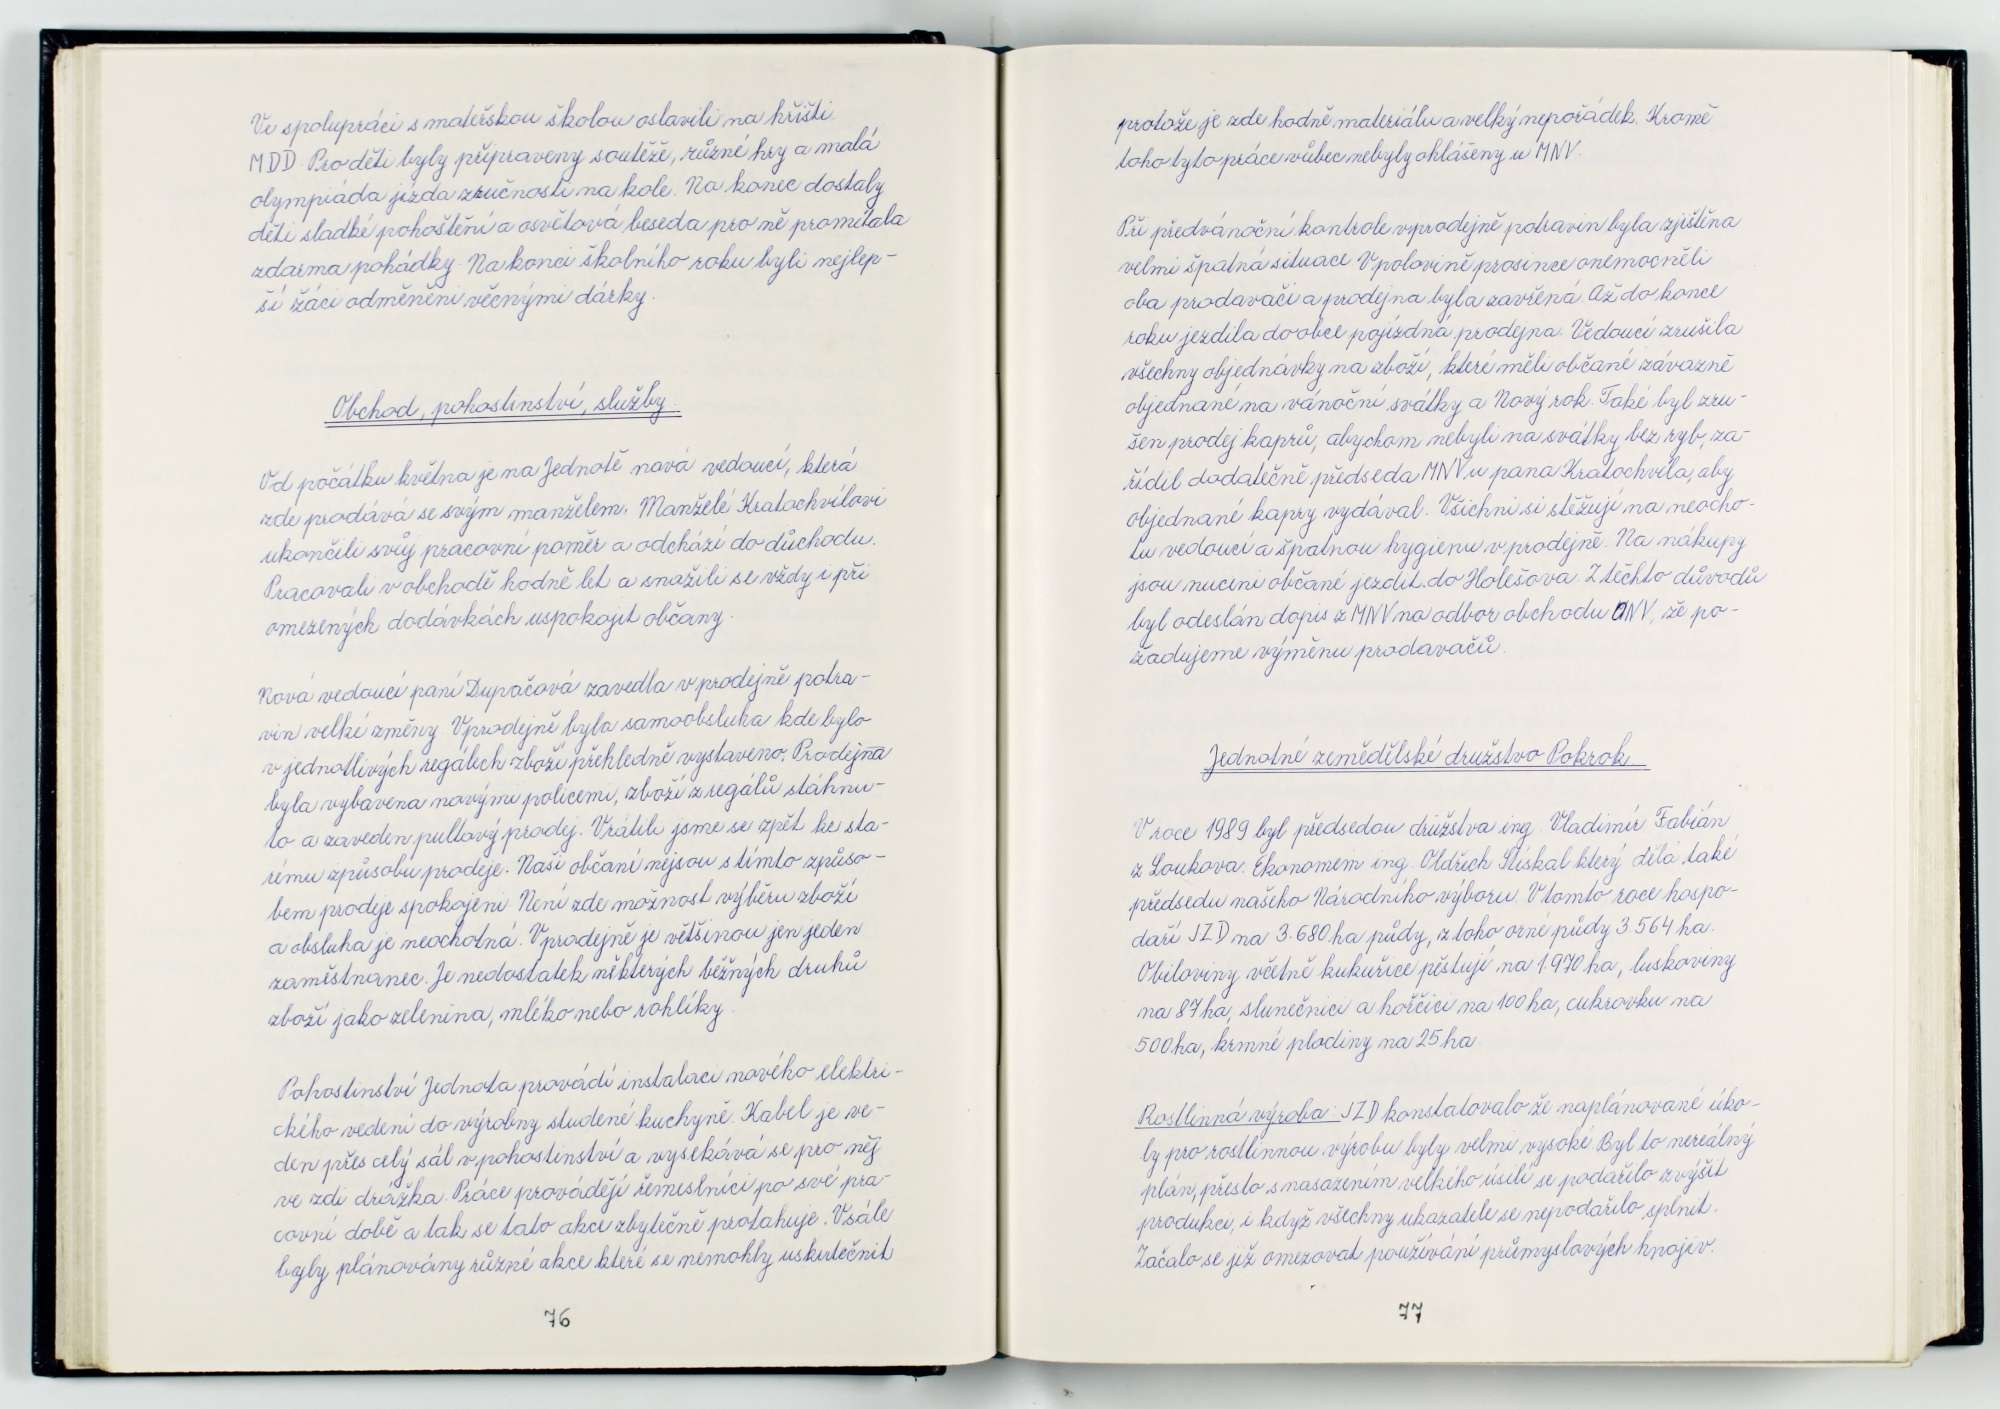 Ve spolupráci s mateřskou školou oslavili na hřišti
MDD. Pro děti byly připraveny soutěže, různé hry a malá
olympiáda jízda zručnosti na kole. Na konec dostaly
děti sladké pohoštění a osvětová beseda pro ně promítala
zdarma pohádky. Na konci školního roku byli nejlep-
ší žáci odměněni věcnými dárky.
Obchod, pohostinství, služby.
Od počátku května je na Jednotě nová vedoucí, která
zde prodává se svým manželem. Manželé Kratochvílovi
ukončili svůj pracovní poměr a odchází do důchodu.
Pracovali v obchodě hodně let a snažili se vždy i při
omezených dodávkách uspokojit občany.
Nová vedoucí paní Dupačová zavedla v prodejně potra-
vin velké změny. V prodejně byla samoobsluha kde bylo
v jednotlivých regálech zboží přehledně vystaveno. Prodejna
byla vybavena novými policemi, zboží z regálů stáhnu-
to a zaveden pultový prodej. Vrátili jsme se zpět ke sta-
rému způsobu prodeje. Naši občané nejsou s tímto způso-
bem prodeje spokojeni. Není zde možnost výběru zboží
a obsluha je neochotná. V prodejně je většinou jen jeden
zaměstnanec. Je nedostatek některých běžných druhů
zboží jako zelenina, mléko nebo rohlíky.
Pohostinství Jednota provádí instalaci nového elektri-
ckého vedení do výrobny studené kuchyně. Kabel je ve-
den přes celý sál v pohostinství a vysekává se pro něj
ve zdi drážka. Práce provádějí řemeslníci po své pra-
covní době a tak se tato akce zbytečně protahuje. V sále
byly plánovány různé akce které se nemohly uskutečnit
76
protože je zde hodně materiálu a velký nepořádek. Kromě
toho tyto práce vůbec nebyly ohlášeny u MNV.
Při předvánoční kontrole v prodejně potravin byla zjištěna
velmi špatná situace. V polovině prosince onemocněli
oba prodavači a prodejna byla zavřená. Až do konce
roku jezdila do obce pojízdná prodejna. Vedoucí zrušila
všechny objednávky na zboží, které měli občané závazně
objednané na vánoční svátky a Nový rok. Také byl zru-
šen prodej kaprů, abychom nebyli na svátky bez ryb, za-
řídil dodatečně předseda MNV u pana Kratochvíla, aby
objednané kapry vydával. Všichni si stěžují na neocho-
tu vedoucí a špatnou hygienu v prodejně. Na nákupy
jsou nuceni občané jezdit do Holešova. Z těchto důvodů
byl odeslán dopis z MNV na odbor obchodu ONV, že po-
žadujeme výměnu prodavačů.
Jednotné zemědělské družstvo Pokrok
V roce 1989 byl předsedou družstva ing. Vladimír Fabián
z Loukova. Ekonomem ing. Oldřich Stískal který dělá také
předsedu našeho Národního výboru. V tomto roce hospo-
daří JZD na 3.680 ha půdy, z toho orné půdy 3.564 ha.
Obiloviny včetně kukuřice pěstují na 1.970 ha, luskoviny
na 87 ha, slunečnici a hořčici na 100 ha, cukrovku na
500 ha, krmné plodiny na 25 ha
Rostlinná výroba: JZD konstatovalo že naplánované úko-
ly pro rostlinnou výrobu byly velmi vysoké. Byl to nereálný
plán, přesto s nasazením velkého úsilí se podařilo zvýšit
produkci, i když všechny ukazatele se nepodařilo splnit.
Začalo se již omezovat používání průmyslových hnojiv.
77